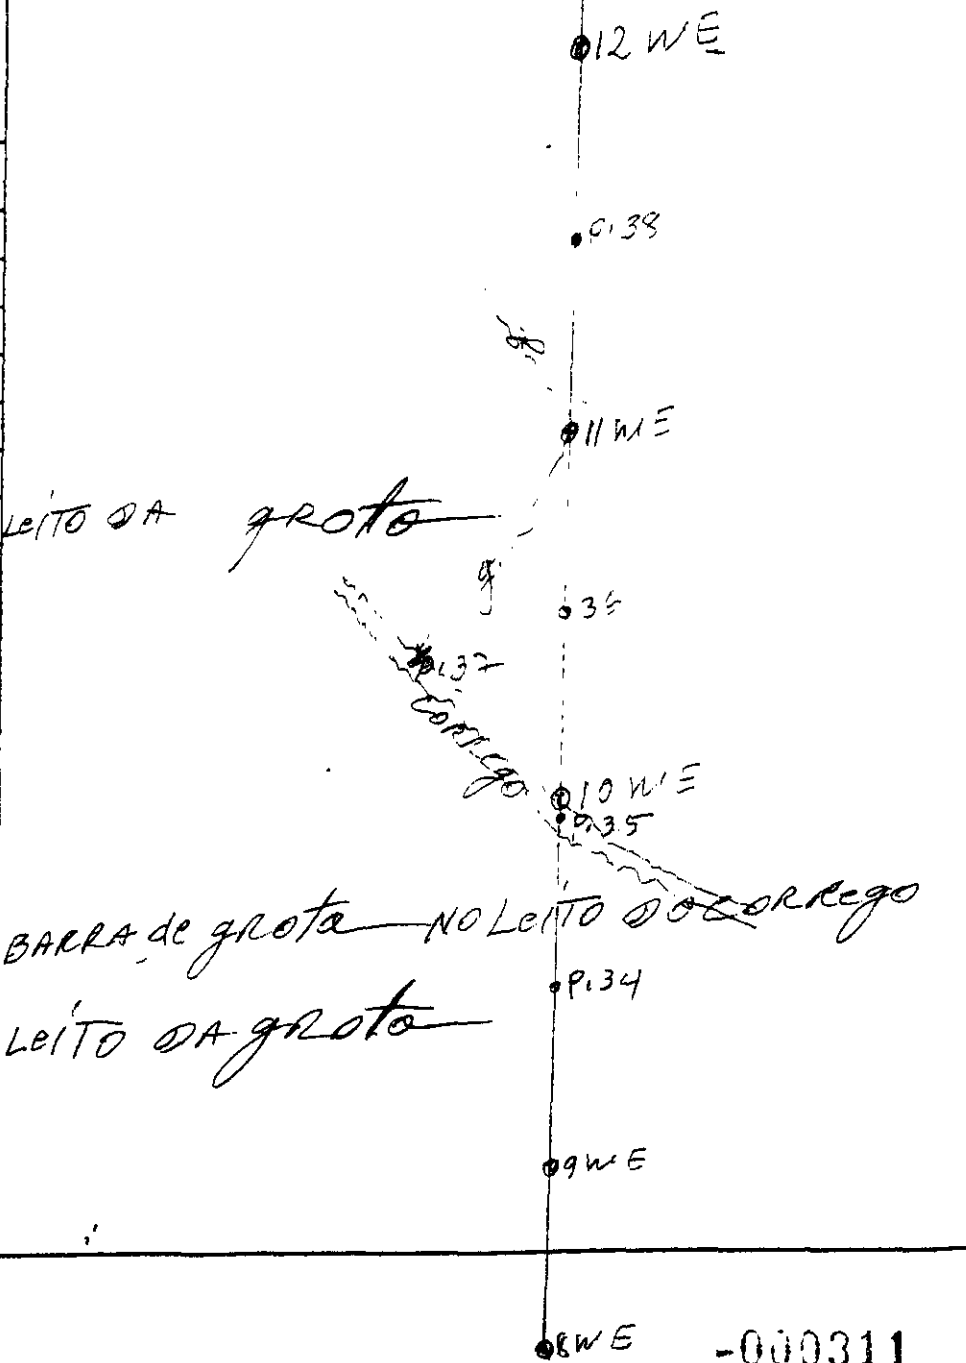 12 WE
p.38
g.
11 WE
LeiTO DA gROTA
g.
p.37
Córrego
10 WE
p.35
BARRA de gROTA NO LeiTO DO CORRego
p.34
LeiTO DA gROTA
9 WE
8 WE
-000311